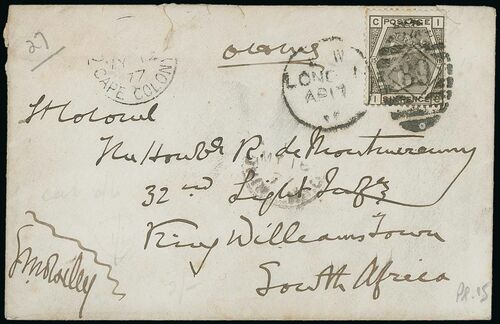 27
CAPE COLONY
77
LONDON
AP 17
C POSTAGE I
I SIXPENCE C
Lt Colonel
The Honble R. de Montmorency
32nd Light Infy
King Williams Town
South Africa